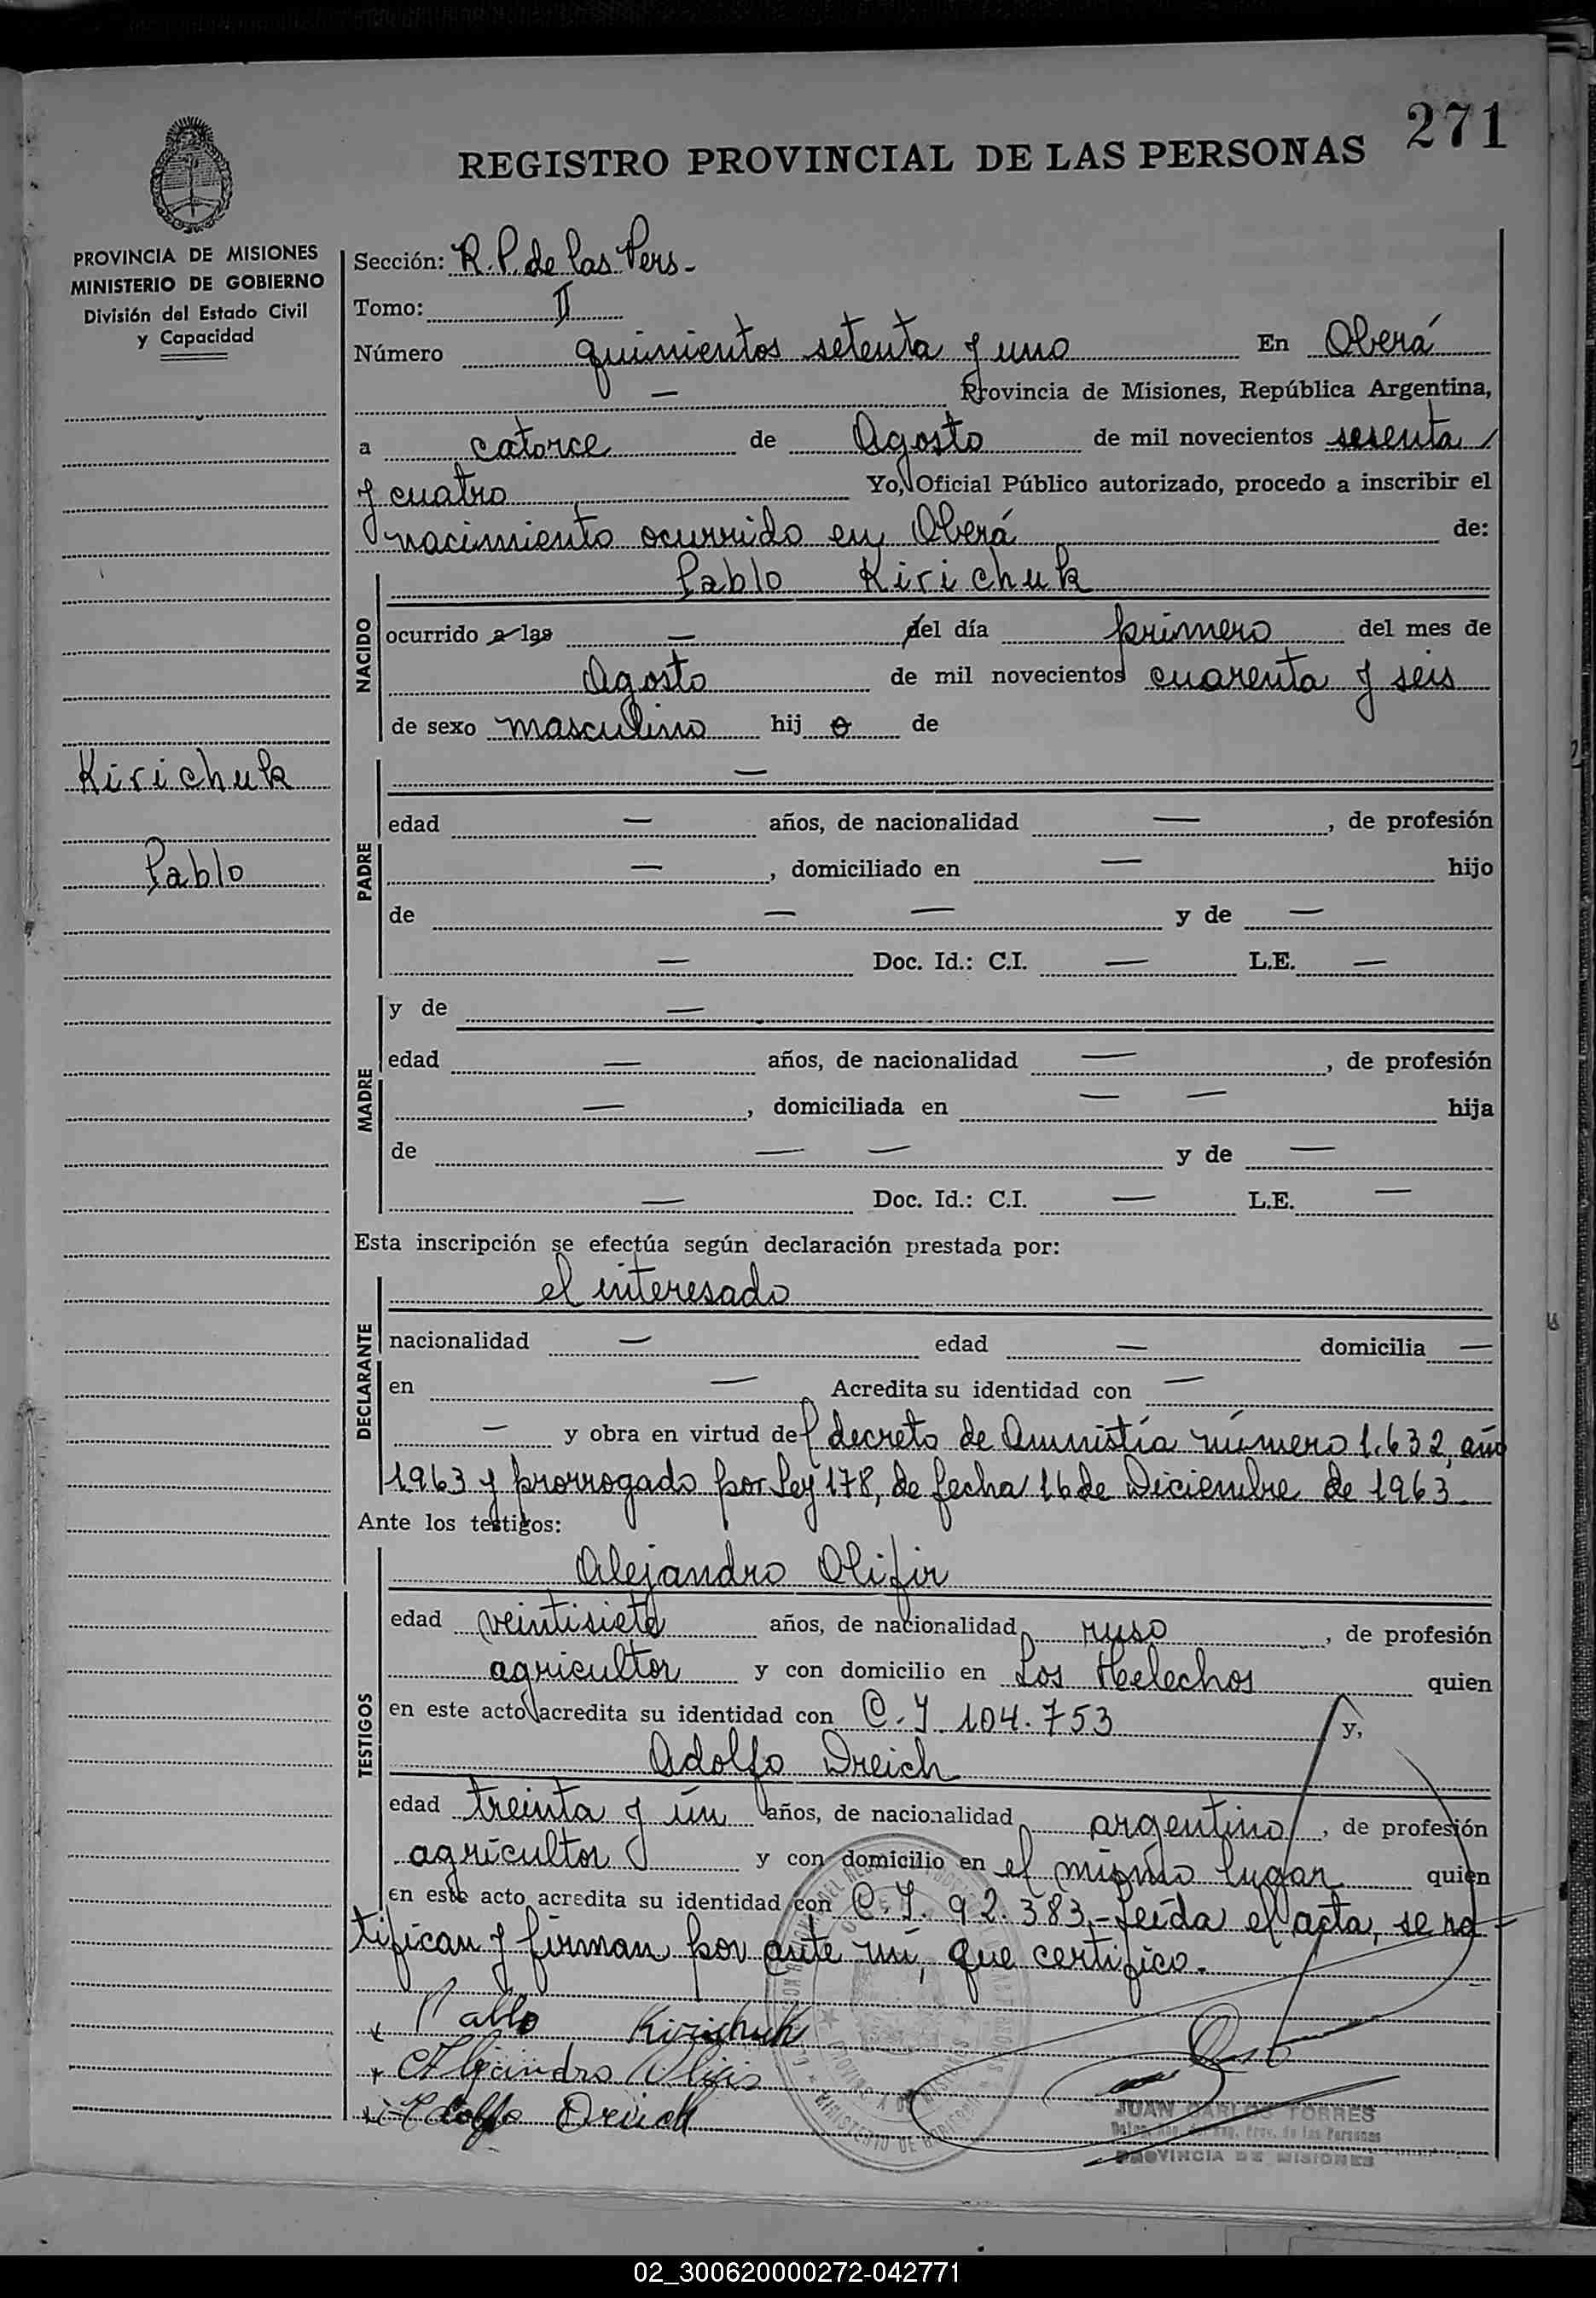 271
REGISTRO PROVINCIAL DE LAS PERSONAS
PROVINCIA DE MISIONES
MINISTERIO DE GOBIERNO
División del Estado Civil
y Capacidad
Kirichuk
Pablo
Sección: R.P. de las Pers-
Tomo: II
Número quinientos setenta y uno En Oberá
— Provincia de Misiones, República Argentina,
a catorce de Agosto de mil novecientos sesenta
y cuatro Yo, Oficial Público autorizado, procedo a inscribir el
nacimiento ocurrido en Oberá de:
NACIDO
Pablo Kirichuk
ocurrido a las — del día primero del mes de
Agosto de mil novecientos cuarenta y seis
de sexo masculino hij o de
PADRE
—
edad — años, de nacionalidad —, de profesión
—, domiciliado en — hijo
de — — y de —
— Doc. Id.: C.I. — L.E. —
MADRE
y de —
edad — años, de nacionalidad —, de profesión
—, domiciliada en — — hija
de — — y de —
— Doc. Id.: C.I. — L.E. —
Esta inscripción se efectúa según declaración prestada por:
DECLARANTE
el interesado
nacionalidad — edad — domicilia —
en — Acredita su identidad con —
— y obra en virtud del decreto de Amnistía número 1.632, año
1963 y prorrogado por Ley 178, de fecha 16 de Diciembre de 1963.
Ante los testigos:
TESTIGOS
Alejandro Olifir
edad veintisiete años, de nacionalidad ruso, de profesión
agricultor y con domicilio en Los Helechos quien
en este acto acredita su identidad con C.I. 104.753 y,
Adolfo Dreich
edad treinta y ún años, de nacionalidad argentino, de profesión
agricultor y con domicilio en el mismo lugar quien
en este acto acredita su identidad con C.I. 92.383.- Leída el acta, se ra-
tifican y firman por ante mí, que certifico.-
Pablo Kirichuk
Alejandro Olifir
Adolfo Dreich
JUAN CARLOS TORRES
Prov. de las Personas
PROVINCIA DE MISIONES
MINISTERIO DE GOBIERNO
02_300620000272-042771